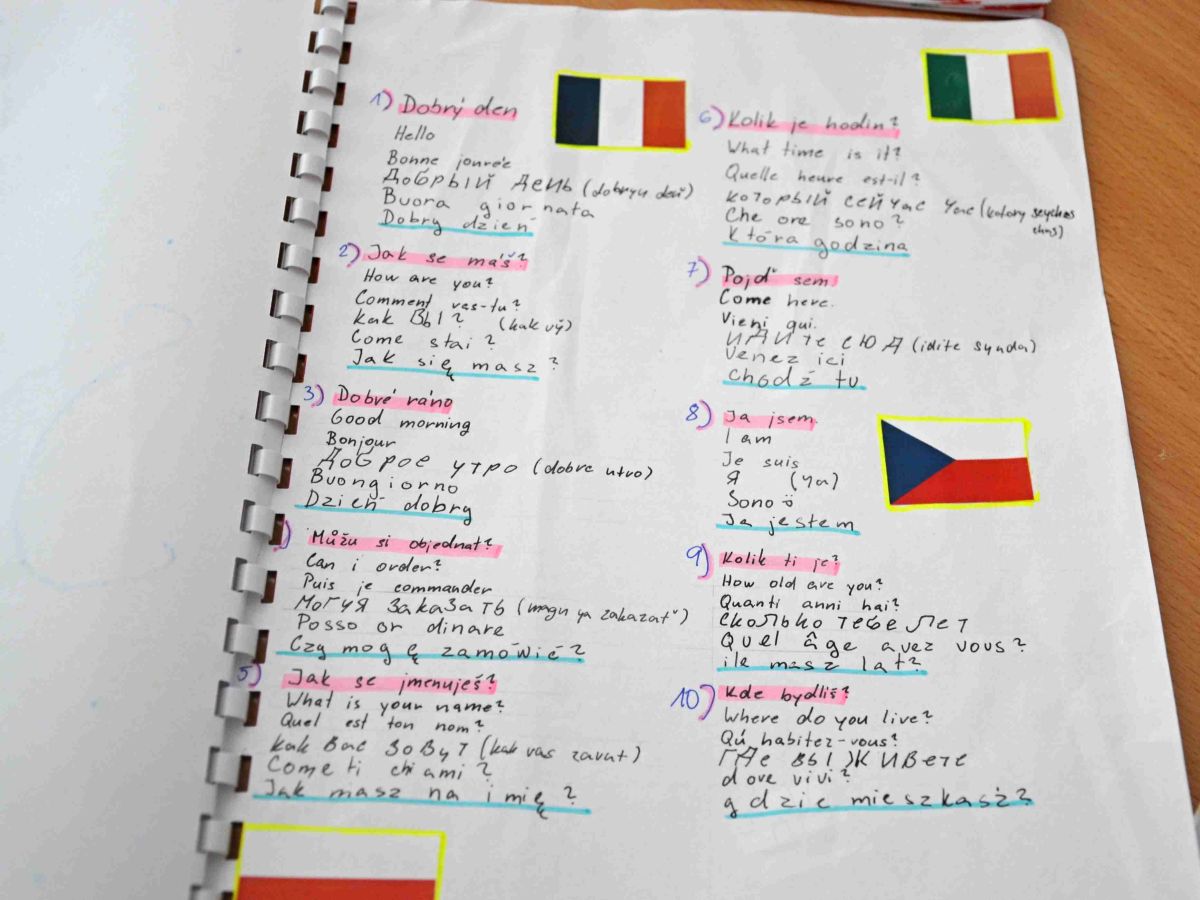 1) Dobrý den
Hello
Bonne jounrée
ДОБРЫЙ ДЕНЬ (dobryu deň)
Buora giornata
Dobry dzień
2) Jak se máš?
How are you?
Comment vas-tu?
Kak ВЫ? (kak vý)
Come stai?
Jak się masz?
3) Dobré ráno
Good morning
Bonjour
ДОБРОЕ УТРО (dobre utvo)
Buongiorno
Dzień dobry
) Můžu si objednat?
Can i order?
Puis je commander
МОГУЯ ЗАКАЗАТЬ (magu ya zakazať)
Posso or dinare
Czy mogę zamówić?
5) Jak se jmenuješ?
What is your name?
Quel est ton nom?
Как Вас ЗОВУТ (kak vas zavut)
Come ti chiami?
Jak masz na imię?
6) Kolik je hodin?
What time is it?
Quelle heure est-il?
КОТОРЫЙ СЕЙЧАС час (kotory seychas
chas)
Che ore sono?
Która godzina
7) Pojď sem
Come here.
Vieni qui.
ИДИТЕ СЮД (idite synda)
Venez ici
Chodź tu
8) Ja jsem.
I am
Je suis
Я (ya)
Sono ö
Ja jestem
9) Kolik ti je?
How old are you?
Quanti anni hai?
СКОЛЬКО ТЕБЕ ЛЕТ
Quel âge avez vous?
ile masz lat?
10) Kde bydliš?
Where do you live?
Qú habitez-vous?
ГДе ВЫ ЖИВЕТЕ
dove vivi?
gdzie mieszkasż?